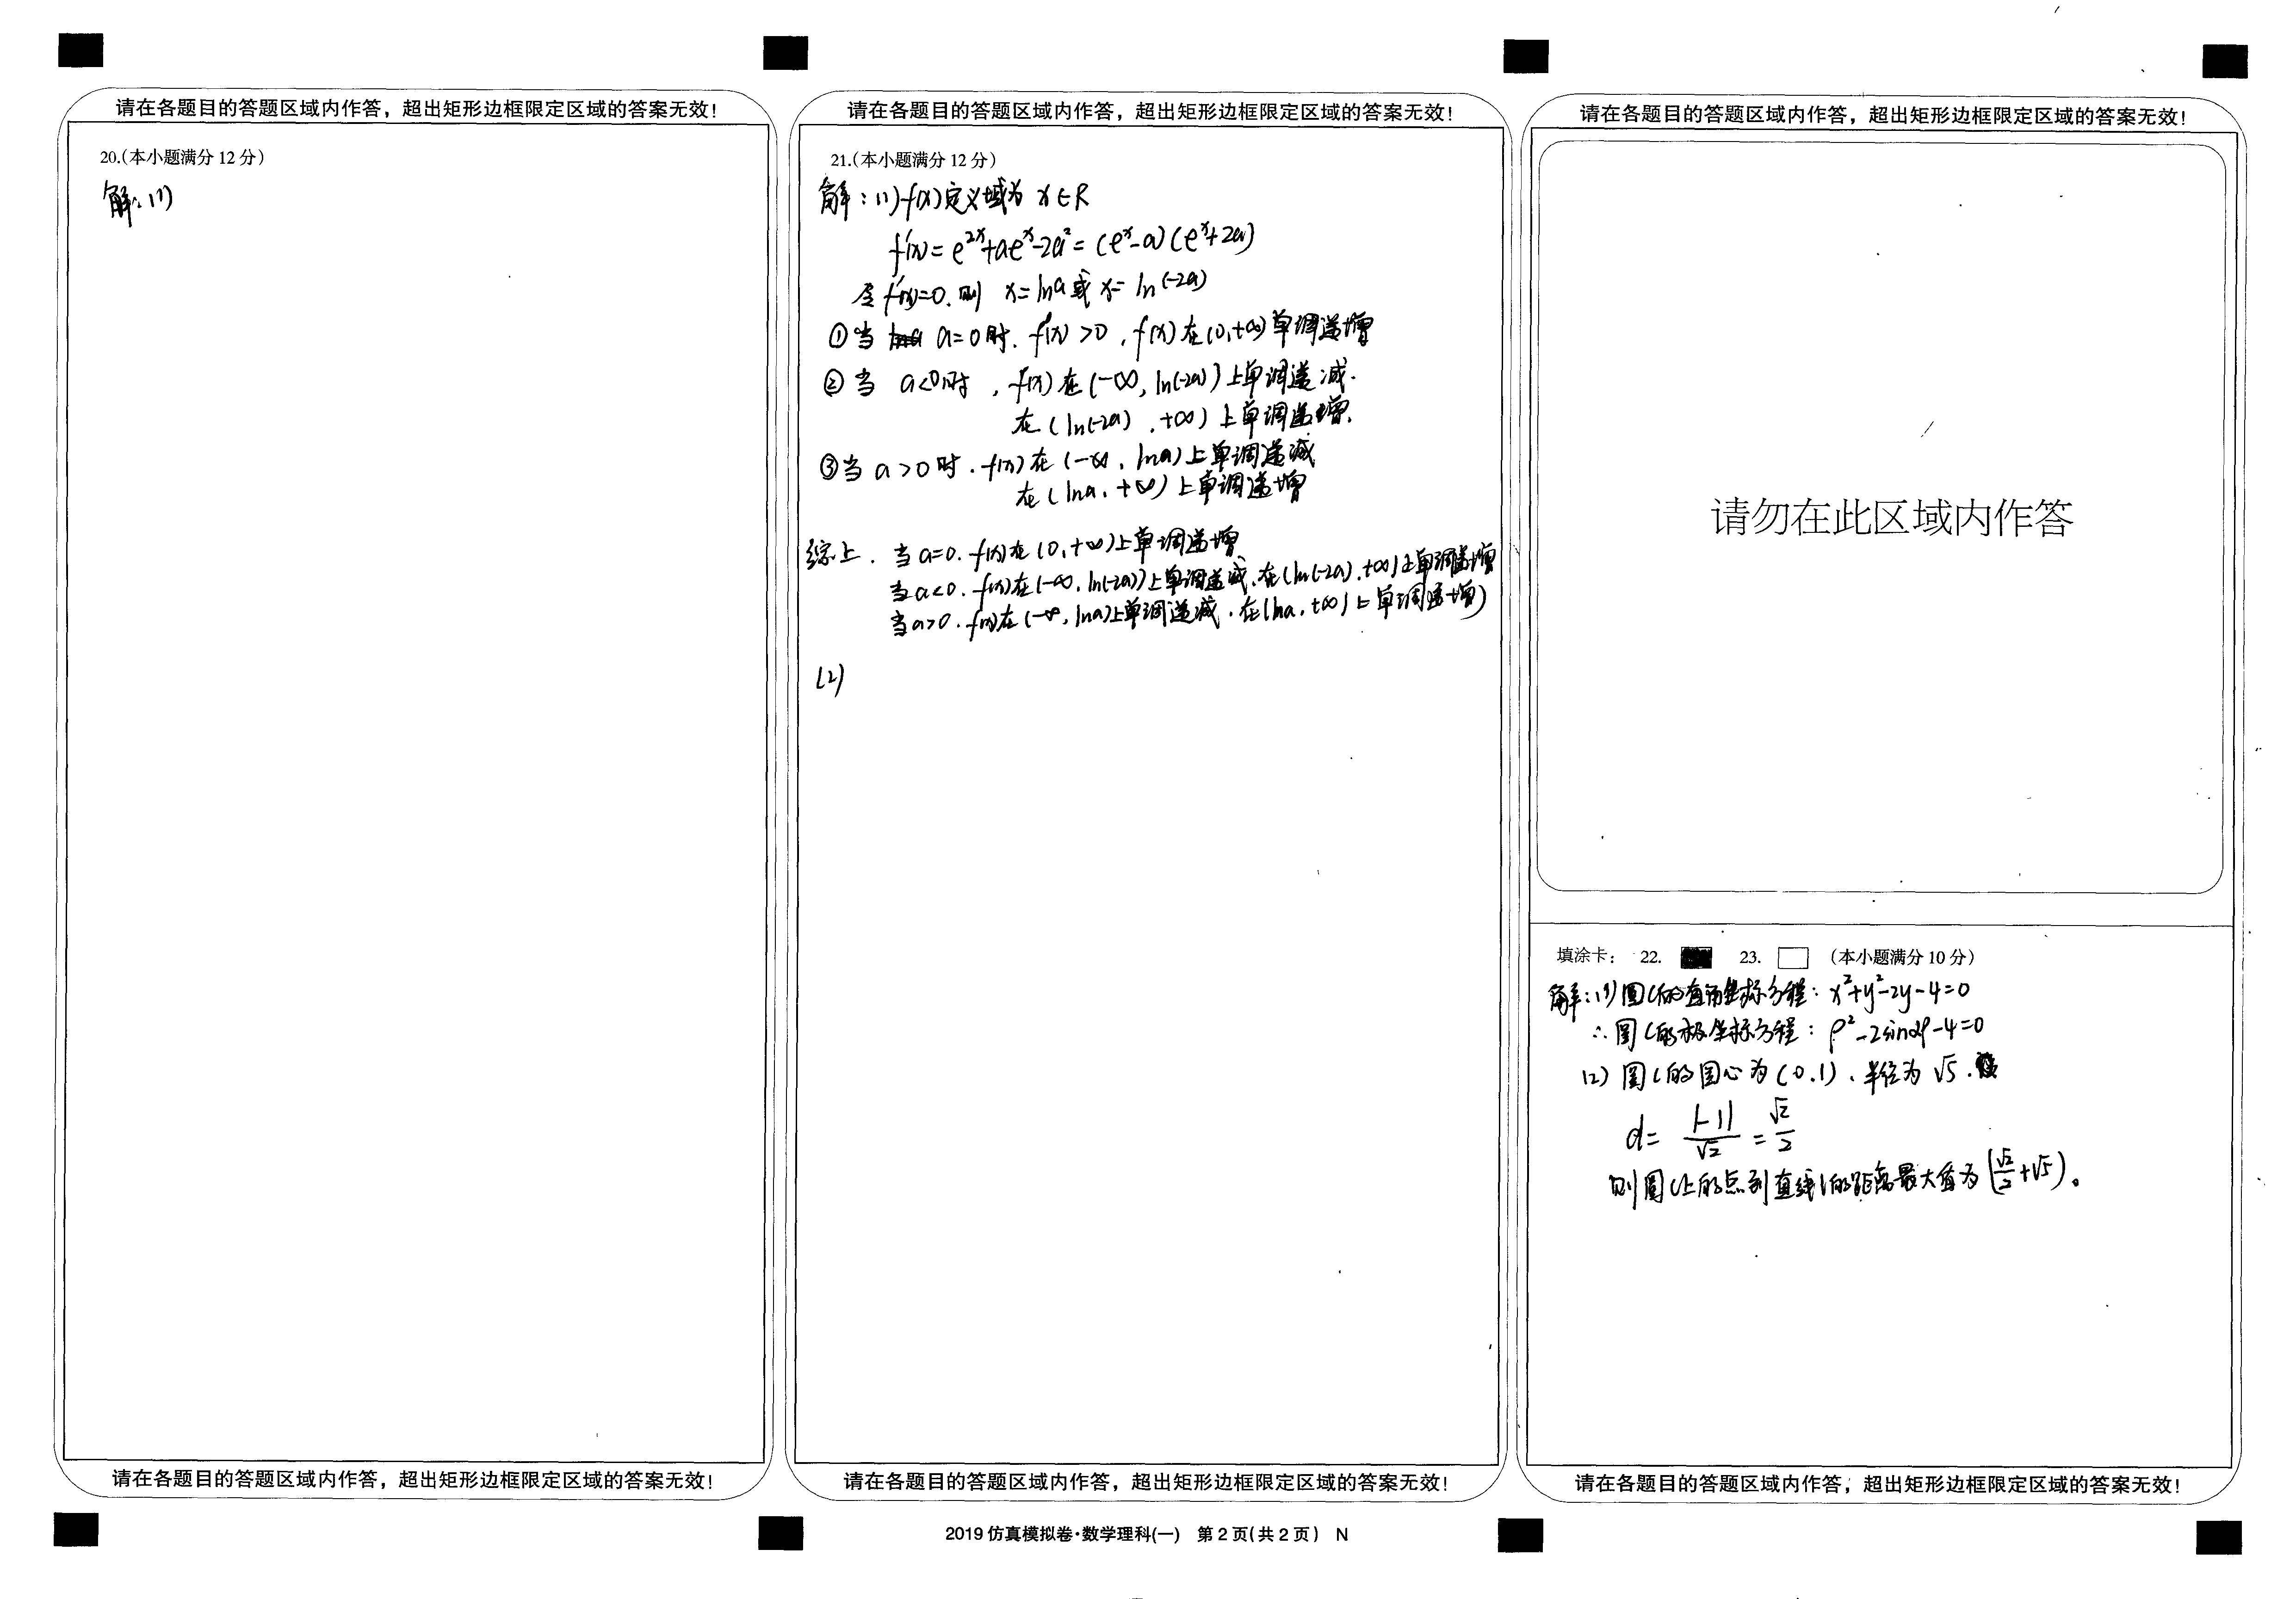 请在各题目的答题区域内作答，超出矩形边框限定区域的答案无效！
20.(本小题满分 12 分)
解：(1)
请在各题目的答题区域内作答，超出矩形边框限定区域的答案无效！
请在各题目的答题区域内作答，超出矩形边框限定区域的答案无效！
21.(本小题满分 12 分)
解：(1) f(x)定义域为 x∈R
f'(x)=e^{2x}+ae^x-2a²=(e^x-a)(e^x+2a)
令f'(x)=0.则 x=lna或x=ln(-2a)
①当 a=0时.f'(x)>0，f(x)在(0,+∞)单调递增
②当 a<0时，f(x)在(-∞,ln(-2a))上单调递减.
在(ln(-2a),+∞)上单调递增.
③当a>0时.f(x)在(-∞,lna)上单调递减
在(lna,+∞)上单调递增
综上.当a=0.f(x)在(0,+∞)上单调递增
当a<0.f(x)在(-∞,ln(-2a))上单调递减.在(ln(-2a),+∞)上单调递增
当a>0.f(x)在(-∞,lna)上单调递减.在(lna,+∞)上单调递增)
(2)
请在各题目的答题区域内作答，超出矩形边框限定区域的答案无效！
请在各题目的答题区域内作答，超出矩形边框限定区域的答案无效！
请勿在此区域内作答
填涂卡： 22. 23. (本小题满分 10 分)
解：(1)圆C的直角坐标方程：x²+y²-2y-4=0
∴圆C的极坐标方程：ρ²-2sinαρ-4=0
(2)圆C的圆心为(0.1)、半径为√5.
d=|-1|/√2=√2/2
则圆C上的点到直线l的距离最大值为(√2/2+√5)。
请在各题目的答题区域内作答，超出矩形边框限定区域的答案无效！
2019 仿真模拟卷·数学理科(一) 第 2 页(共 2 页) N